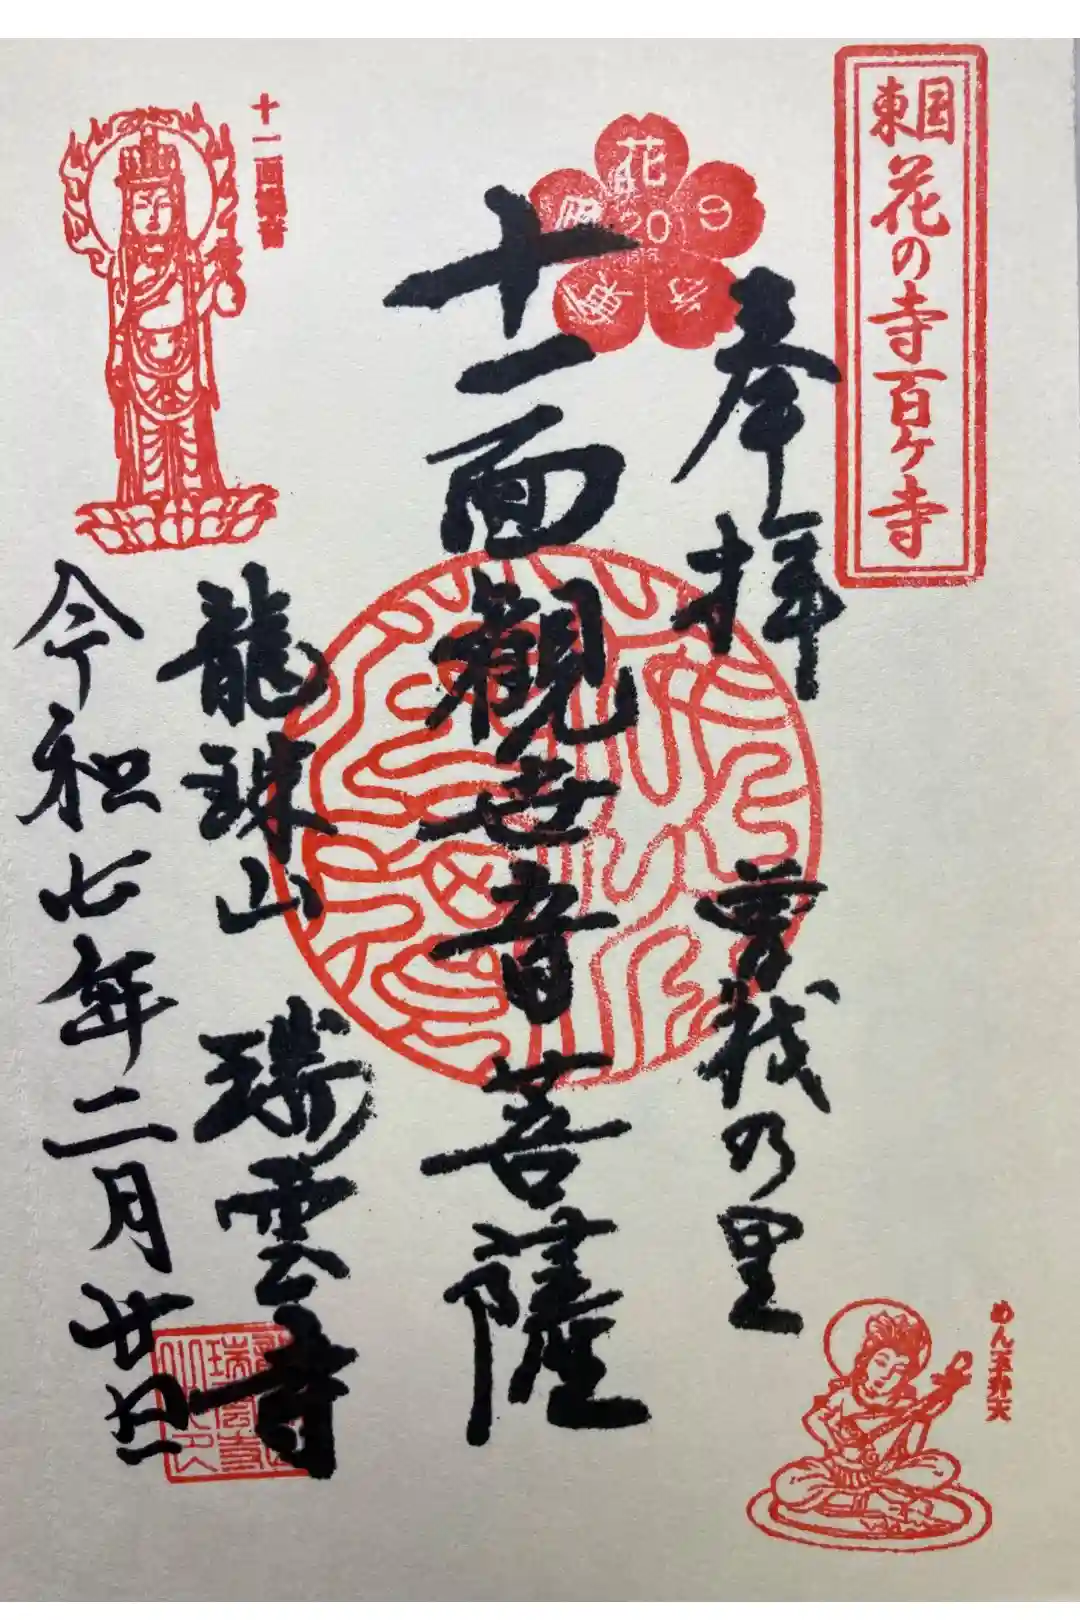 東国花の寺百ヶ寺
奉拝 曽我の里
花の寺
20
十一面観世音菩薩
十一面観音
龍珠山 瑞雲寺
令和七年二月廿二日
めん玉弁天